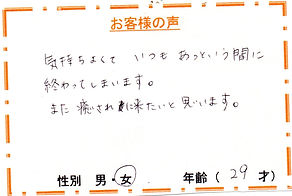 お客様の声
気持ちよくて いつも あっという間に
終わってしまいます。
また 癒されに来たいと思います。
性別 男・女 年齢（29才）